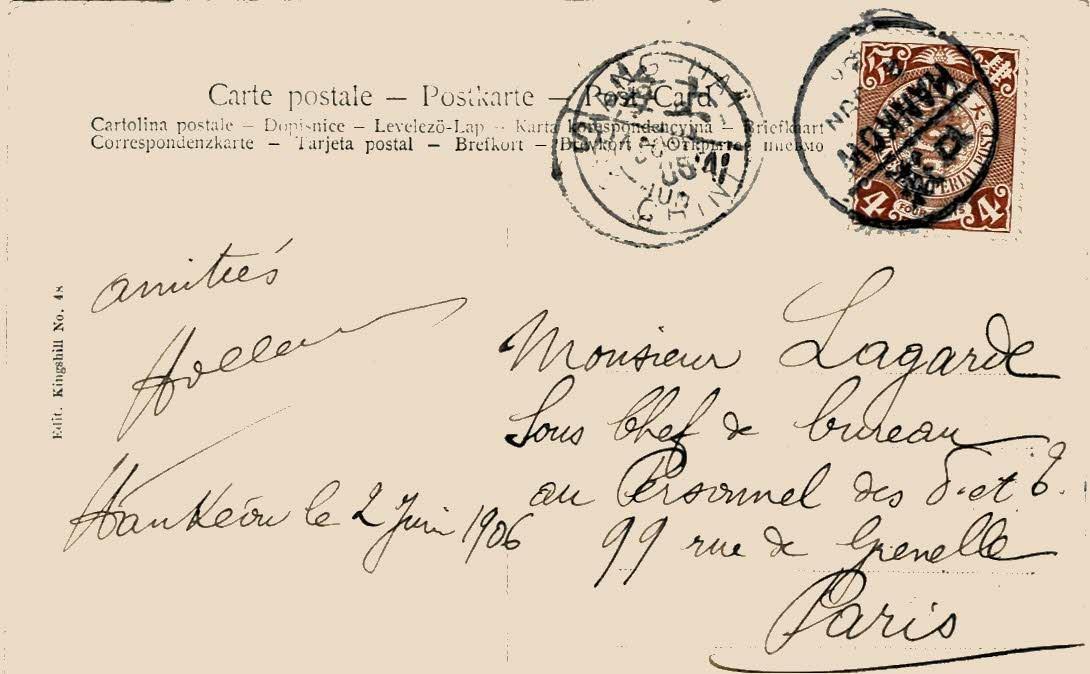 Carte postale — Postkarte — Post-Card
Cartolina postale — Dopisnice — Levelező-Lap — Karta korespondencyjna — Briefkaart
Correspondenzkarte — Tarjeta postal — Brefkort — Brevkort — Открытое письмо
SHANG-HAÏ
CHINE
HANKOW
IMPERIAL POST
4
4
amitiés
Edit. Kingshill No. 48
Hankéou le 2 Juin 1906
Monsieur Lagarde
Sous Chef de bureau
au Personnel des P. et T.
99 rue de Grenelle
Paris